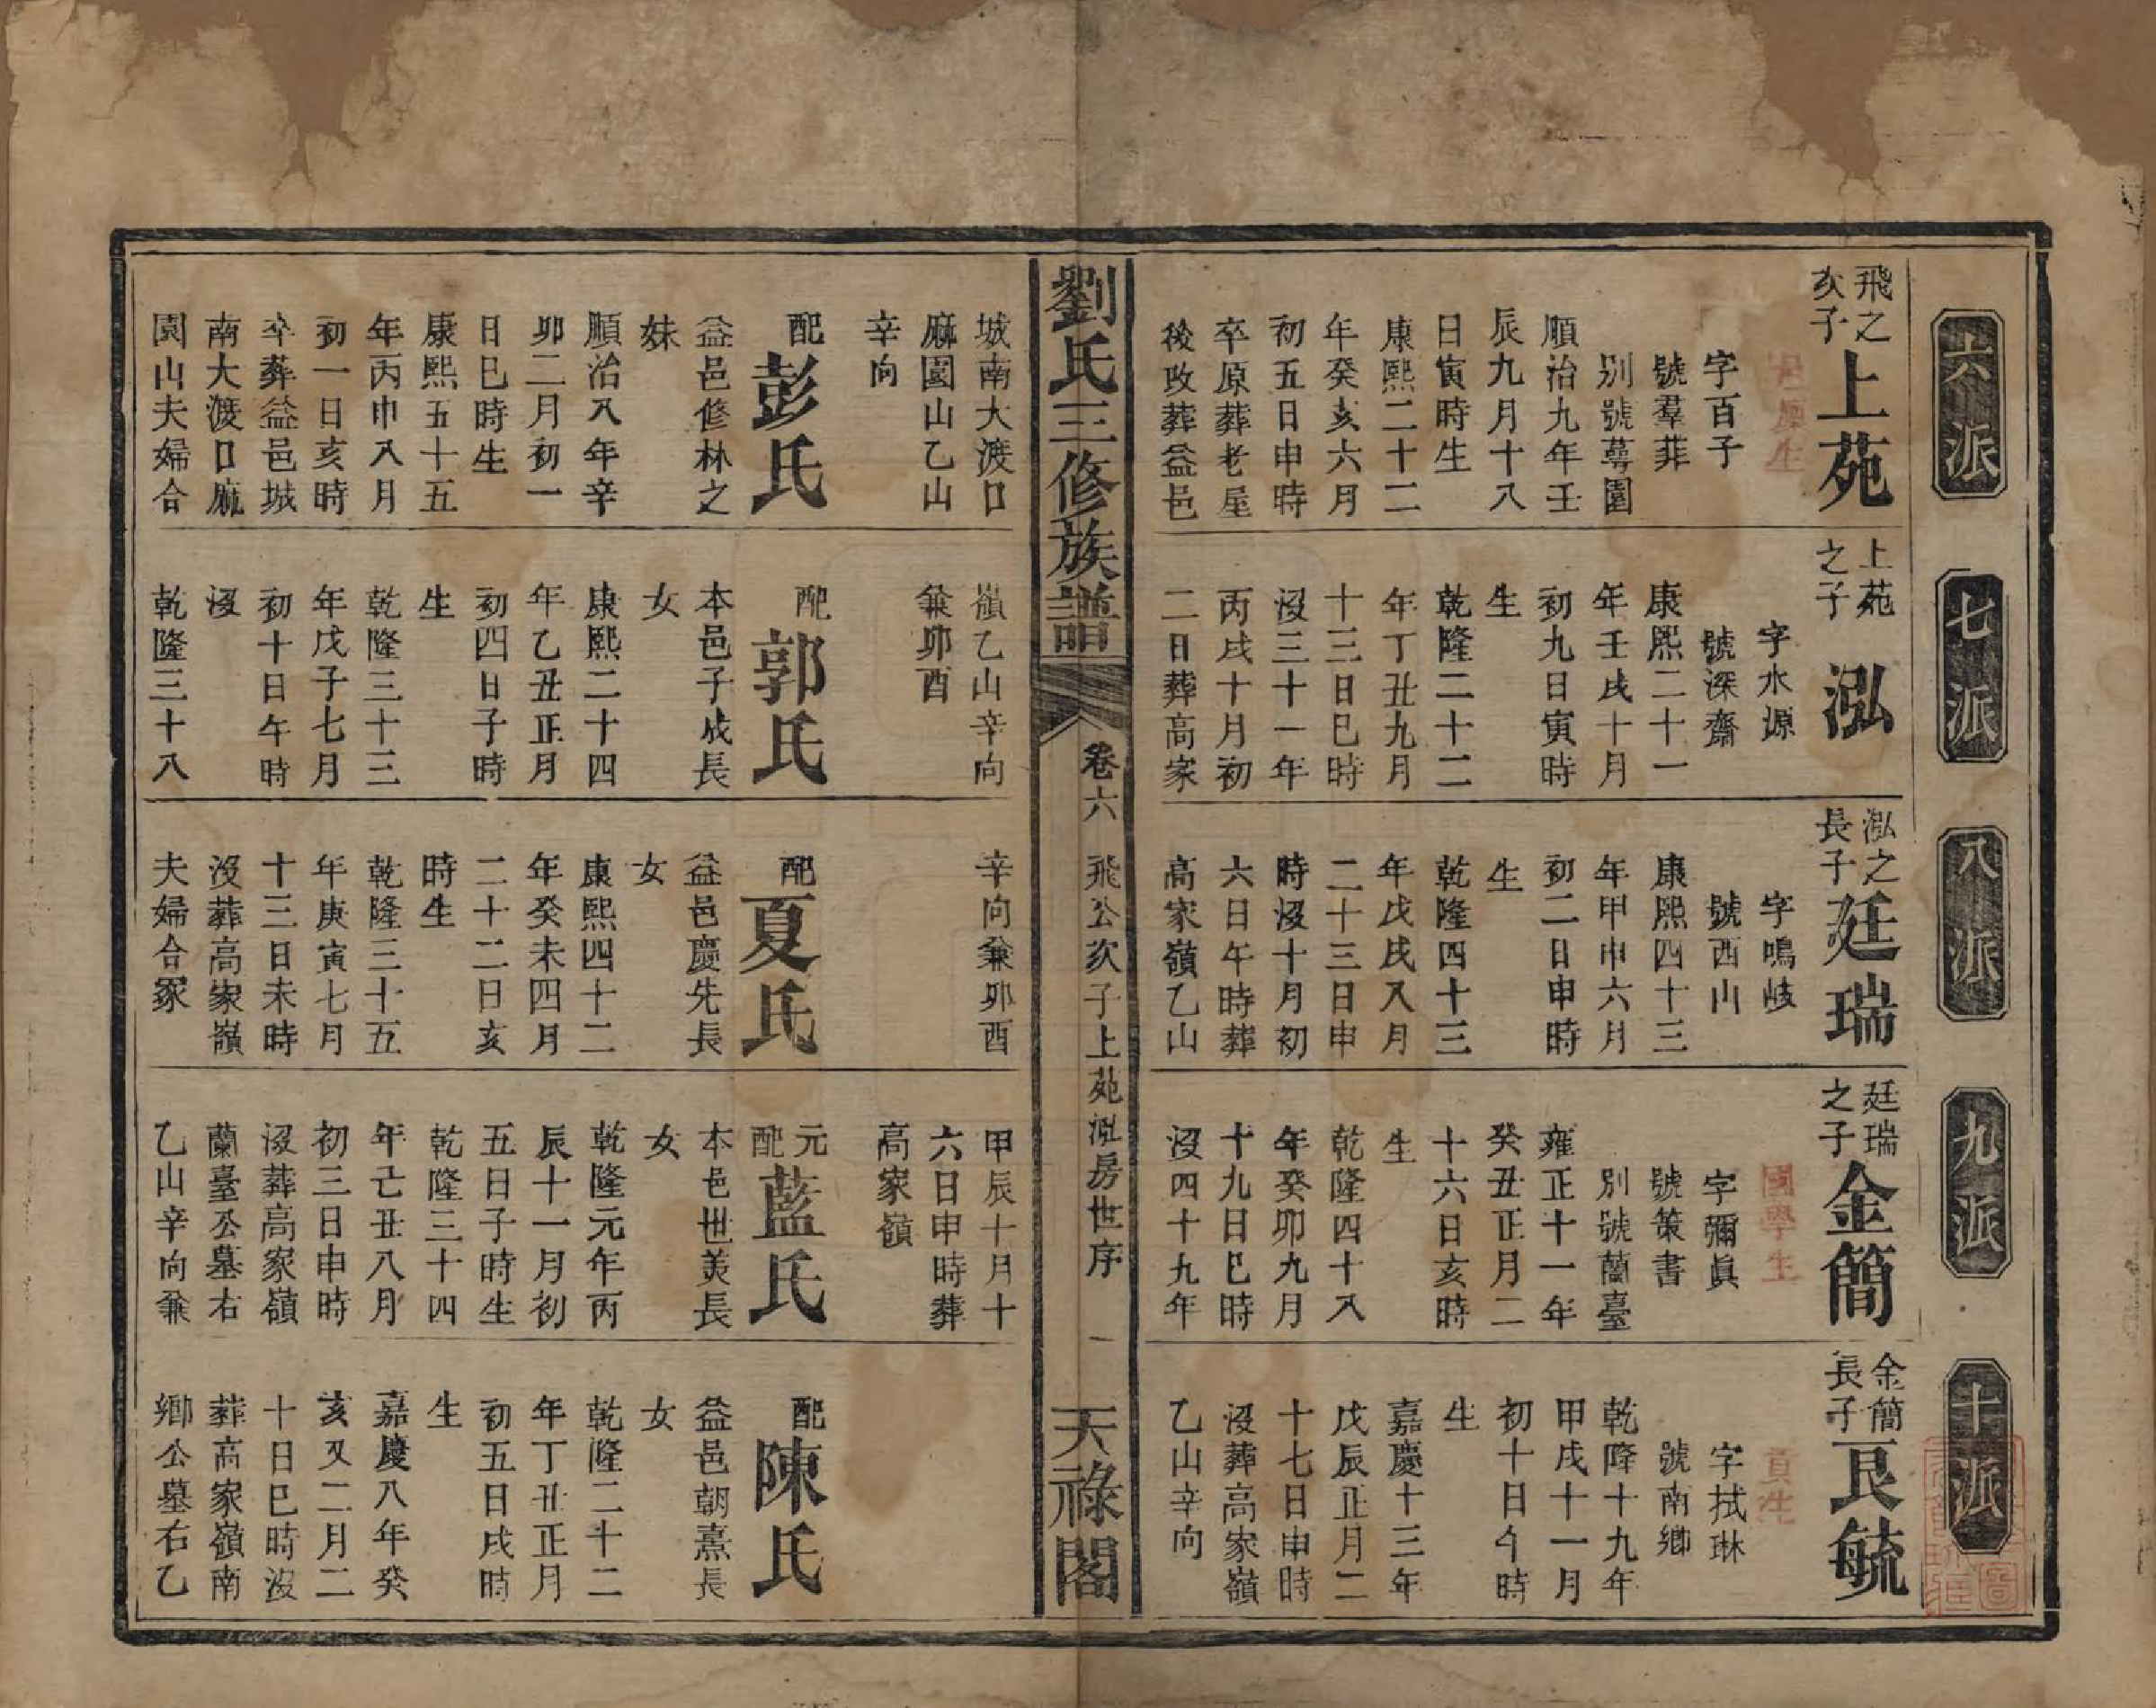 六派
飛之
次子
上苑
邑庠生
字百子
號羣菲
別號蕚園
順治九年壬
辰九月十八
日寅時生
康熙二十二
年癸亥六月
初五日申時
卒原葬老屋
後改葬益邑
城南大渡口
麻園山乙山
辛向
配
彭氏
益邑修林之
妹
順治八年辛
卯二月初一
日巳時生
康熙五十五
年丙申八月
初一日亥時
卒葬益邑城
南大渡口麻
園山夫婦合
七派
上苑
之子
泓
字水源
號深齋
康熙二十一
年壬戌十月
初九日寅時
生
乾隆二十二
年丁丑九月
十三日巳時
沒三十一年
丙戌十月初
二日葬高家
嶺乙山辛向
兼卯酉
配
郭氏
本邑子成長
女
康熙二十四
年乙丑正月
初四日子時
生
乾隆三十三
年戊子七月
初十日午時
沒
乾隆三十八
八派
泓之
長子
廷瑞
字鳴岐
號西山
康熙四十三
年甲申六月
初二日申時
生
乾隆四十三
年戊戌八月
二十三日申
時沒十月初
六日午時葬
高家嶺乙山
辛向兼卯酉
配
夏氏
益邑慶先長
女
康熙四十二
年癸未四月
二十二日亥
時生
乾隆三十五
年庚寅七月
十三日未時
沒葬高家嶺
夫婦合冢
九派
廷瑞
之子
金簡
國學生
字彌眞
號策書
別號蘭臺
雍正十一年
癸丑正月二
十六日亥時
生
乾隆四十八
年癸卯九月
十九日巳時
沒四十九年
甲辰十月十
六日申時葬
高家嶺
元
配
藍氏
本邑世美長
女
乾隆元年丙
辰十一月初
五日子時生
乾隆三十四
年己丑八月
初三日申時
沒葬高家嶺
蘭臺公墓右
乙山辛向兼
十派
金簡
長子
艮毓
貢生
字拭琳
號南鄉
乾隆十九年
甲戌十一月
初十日午時
生
嘉慶十三年
戊辰正月二
十七日申時
沒葬高家嶺
乙山辛向
配
陳氏
益邑朝熹長
女
乾隆二十二
年丁丑正月
初五日戌時
生
嘉慶八年癸
亥又二月二
十日巳時沒
葬高家嶺南
鄉公墓右乙
劉氏三修族譜
卷六
飛公次子上苑泓房世序
一
天祿閣